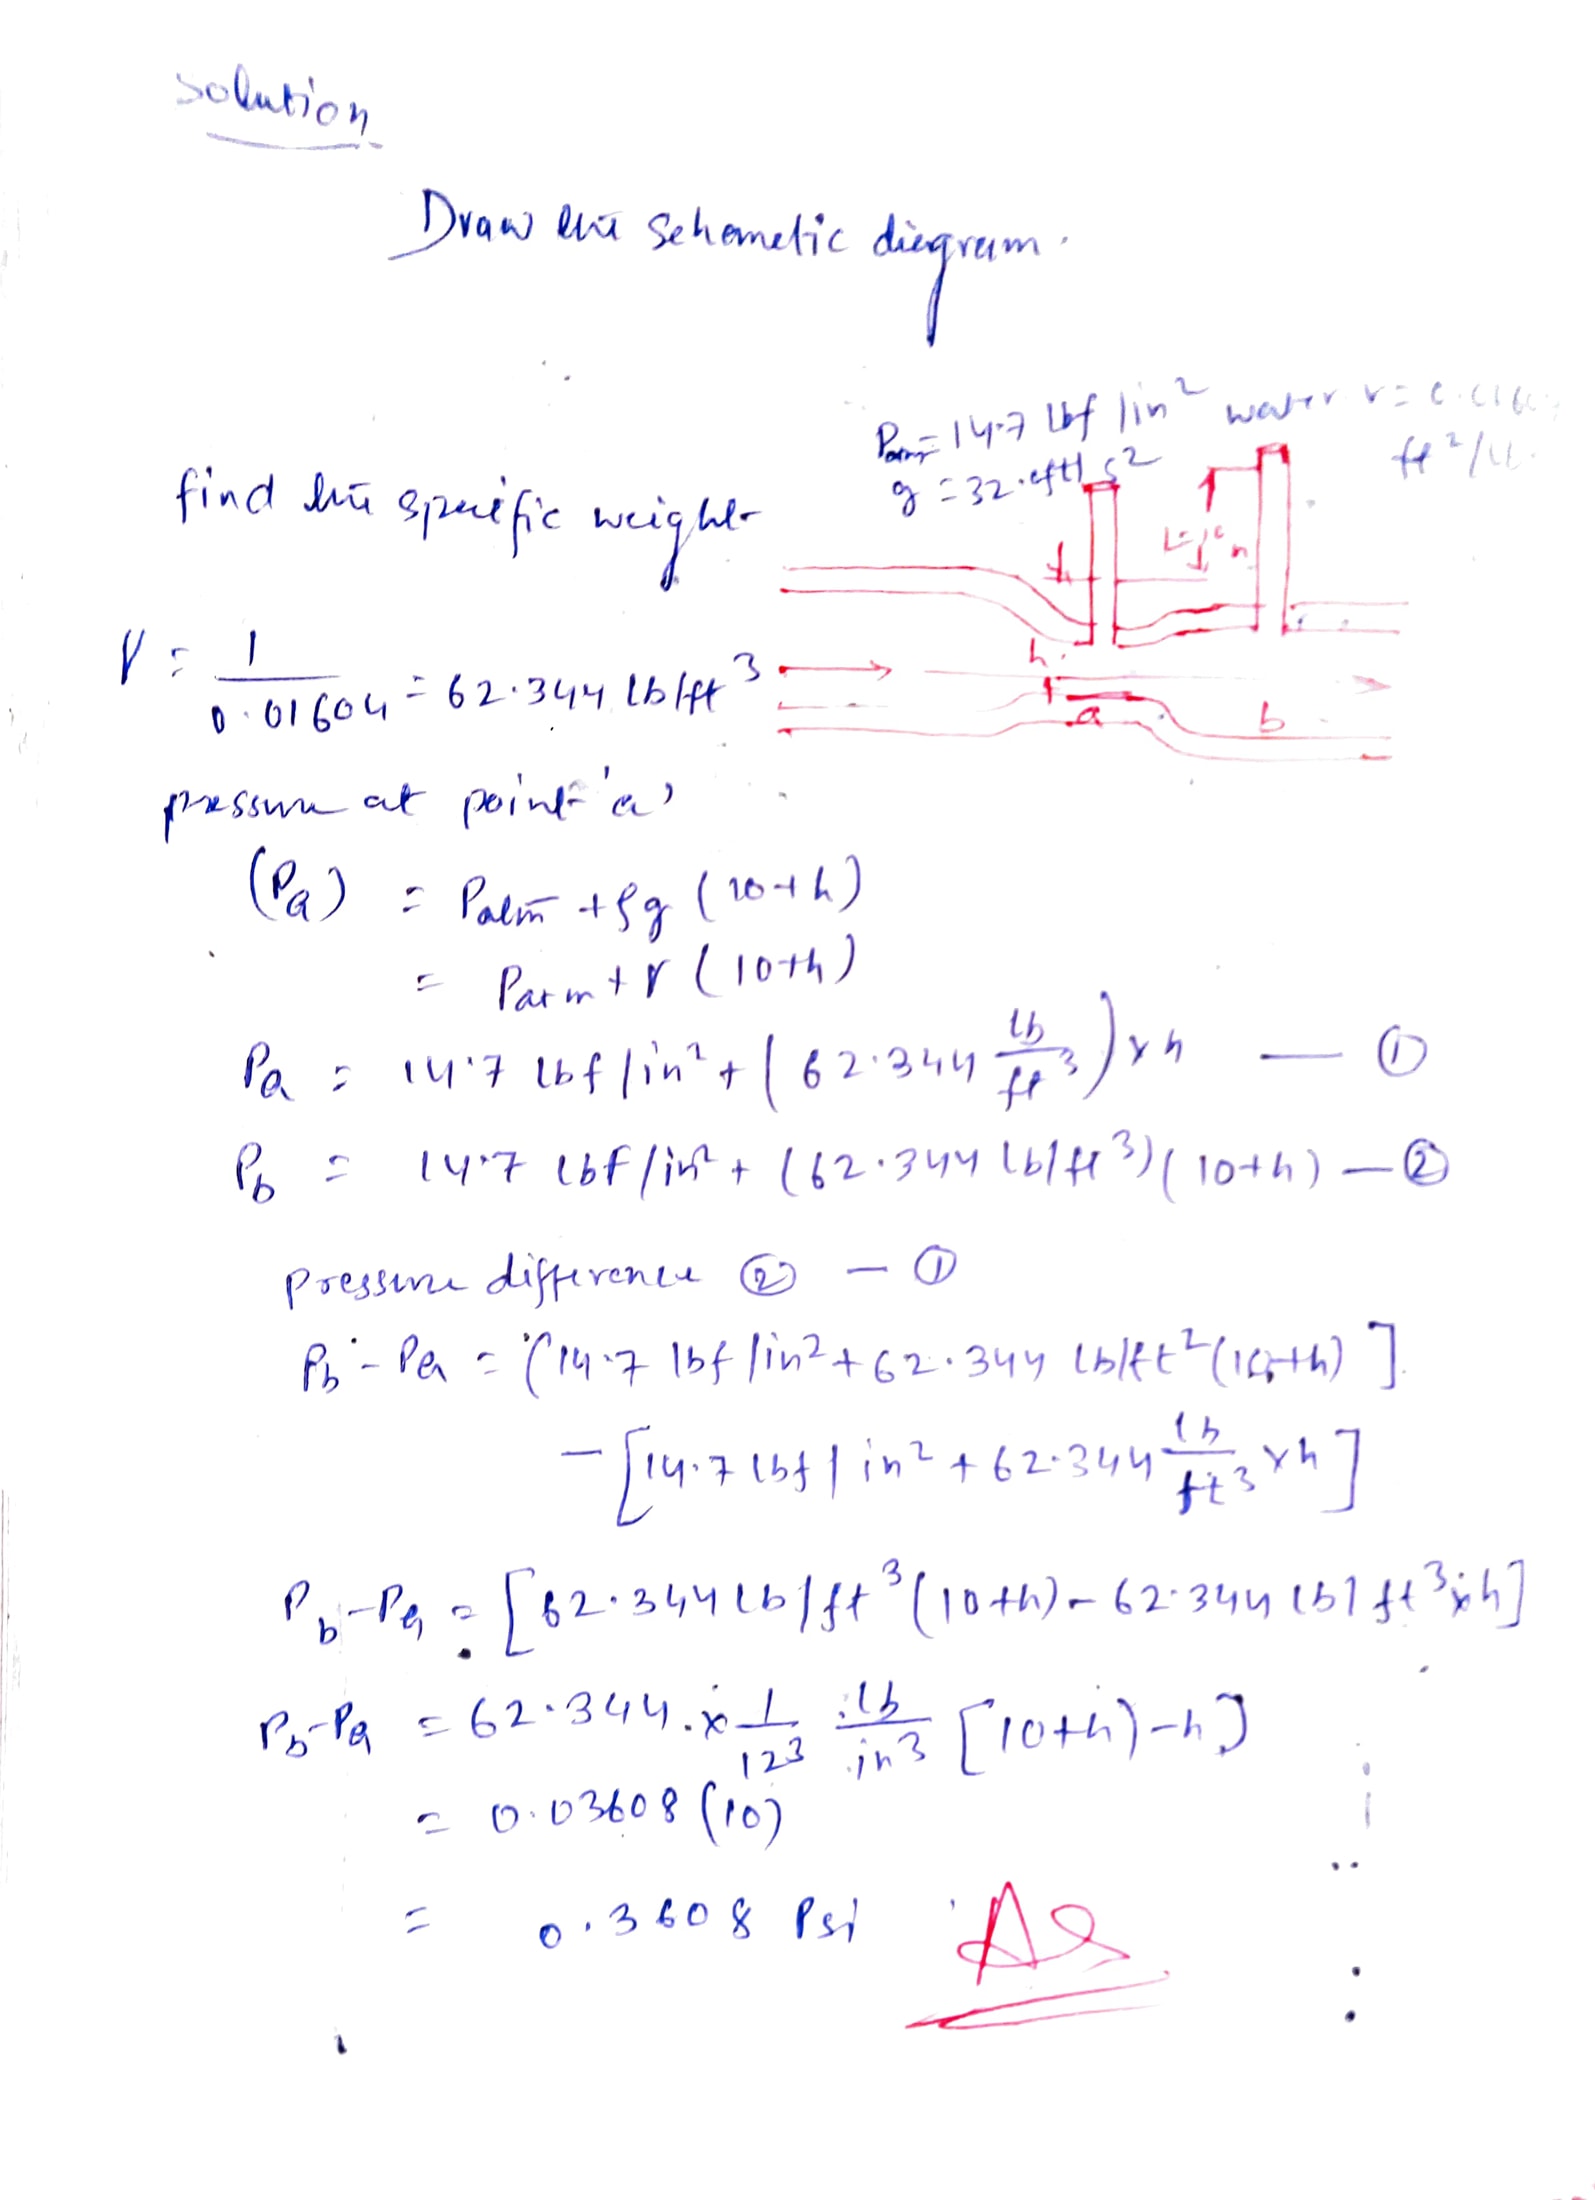 solution
Draw the schemetic diegram.
Patm = 14.7 lbf/in² water
g = 32. ft/s²
find the specific weight
h
a
b
γ = 1/0.01604 = 62.344 lb/ft³
pressure at point 'a'
(Pa) = Patm + ρg (10+h)
= Patm + γ (10+h)
Pa = 14.7 lbf/in² + (62.344 lb/ft³) × h — ①
Pb = 14.7 lbf/in² + (62.344 lb/ft³)(10+h) — ②
pressure difference ② — ①
Pb - Pa = [14.7 lbf/in² + 62.344 lb/ft² (10+h)]
- [14.7 lbf/in² + 62.344 lb/ft³ × h]
Pb - Pa = [62.344 lb/ft³ (10+h) - 62.344 lb/ft³ × h]
Pb - Pa = 62.344 × 1/12³ lb/in³ [10+h) - h]
= 0.03608 (10)
= 0.3608 Psi